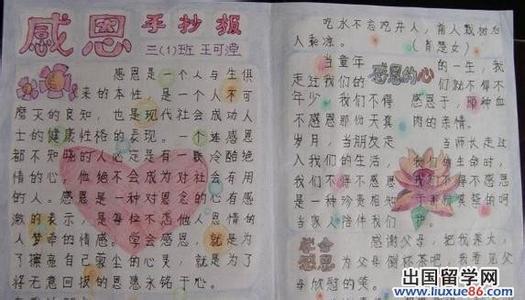 感恩手抄报
三(1)班 王可滢
感恩是一个人与生俱
来的本性,是一个人不可
磨灭的良知,也是现代社会成功人
士的健康性格的表现。一个连感恩
都不知晓的人必定是有一颗冷酷绝
情的心,他绝不会成为对社会有用
的人。感恩是一种对恩惠的心有感
激的表示,是每位不忘他人恩情的
人梦牵的情感,学会感恩,就是为
了擦亮自己蒙尘的心灵,就是为了
将无意回报的恩惠永铭于心。
吃水不忘吃井人,前人栽树后
人乘凉。
感恩的心
当童年
的一生,我
走过我们的
们就不得不
年少,我们不得
感恩于,那种血
不感恩那份天真
肉的亲情。
岁月,当朋友走
当师长走过
入我们的生活,我
我们的生命时,
们不得不感恩
我们不得不感恩
是一种珍贵相
当家人陪伴我们
学会感恩
感谢父母,把我养大,
为父母倒杯茶吧,我要
母欣慰的笑。
出国留学网
www.liuxue86.com